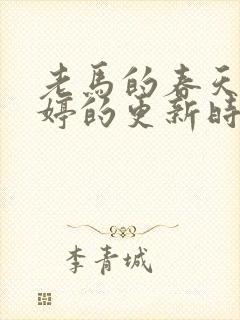 老馬的春天
婷的更新時
李青城